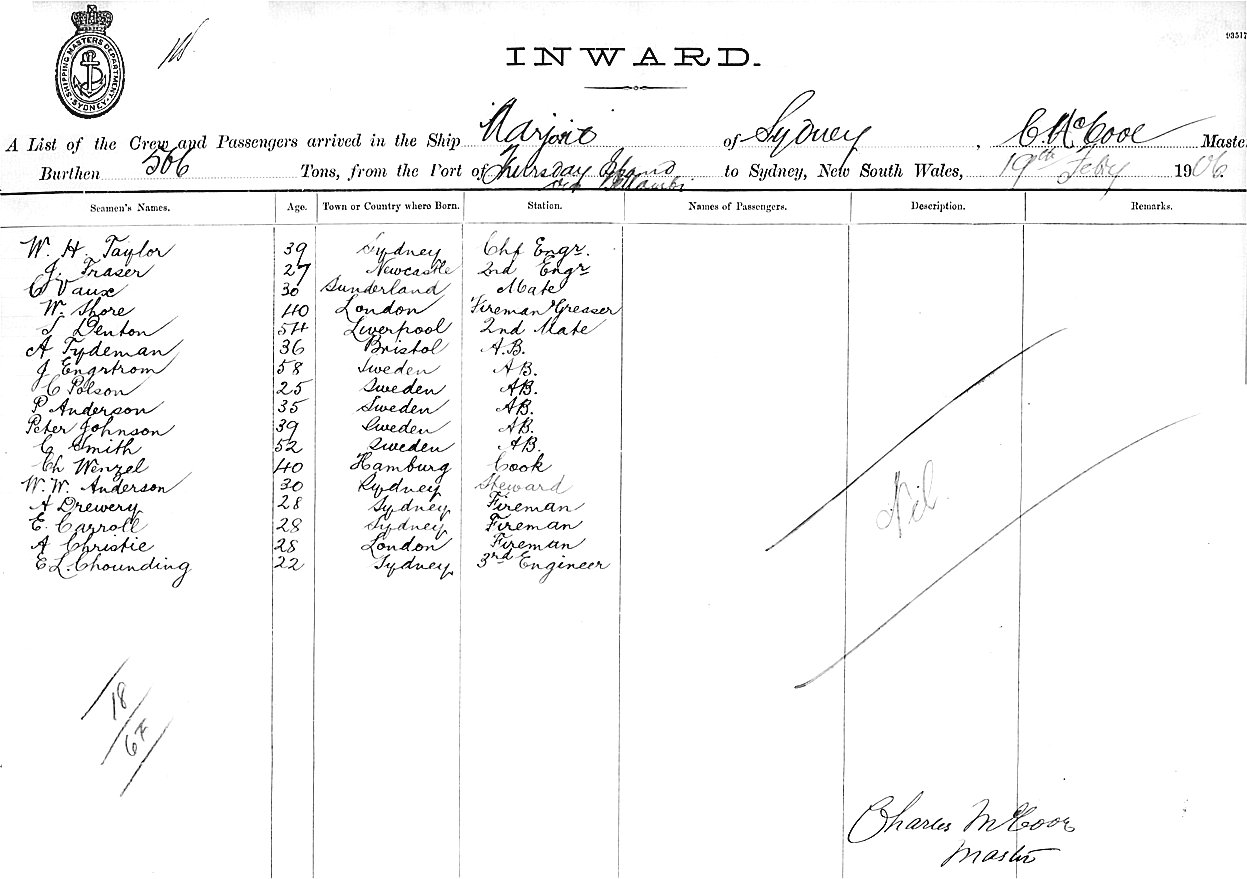 SHIPPING MASTERS DEPARTMENT SYDNEY
93517
INWARD.
A List of the Crew and Passengers arrived in the Ship Marjorie of Sydney, C McCooe Maste
Burthen 566 Tons, from the Port of Thursday Island via Bellambi to Sydney, New South Wales, 19th Feby 1906
Seamen's Names. Age. Town or Country where Born. Station. Names of Passengers. Description. Remarks.
W. H. Taylor 39 Sydney Chf Engr.
J. Fraser 27 Newcastle 2nd Engr
C Vaux 30 Sunderland Mate
W. Shore 40 London Fireman & Greaser
S Denton 54 Liverpool 2nd Mate
A Tydeman 36 Bristol A.B.
J Engstrom 58 Sweden AB.
C Polson 25 Sweden AB.
P Anderson 35 Sweden AB.
Peter Johnson 39 Sweden AB.
C Smith 52 Sweden AB.
Ch Wenzel 40 Hamburg Cook
W. W. Anderson 30 Sydney Steward
A Drewery 28 Sydney Fireman
E. Carroll 28 Sydney Fireman
A Christie 28 London Fireman
E L. Chounding 22 Sydney 3rd Engineer
Nil
18
Charles McCooe
Master